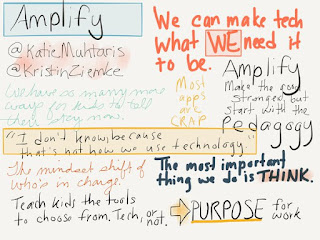 Amplify
@KatieMuhtaris
@KristinZiemke
We have so many more
ways for kids to tell
their story now.
"I don't know, because
that's not how we use technology."
The mindset shift of
who's in charge.
Teach kids the tools
to choose from. Tech, or not.
We can make tech
what WE need it
to be.
Most
apps
are
CRAP
Amplify
Make the
stronger, but
start with the
Pedagogy
The most important
thing we do is THINK.
PURPOSE for
work